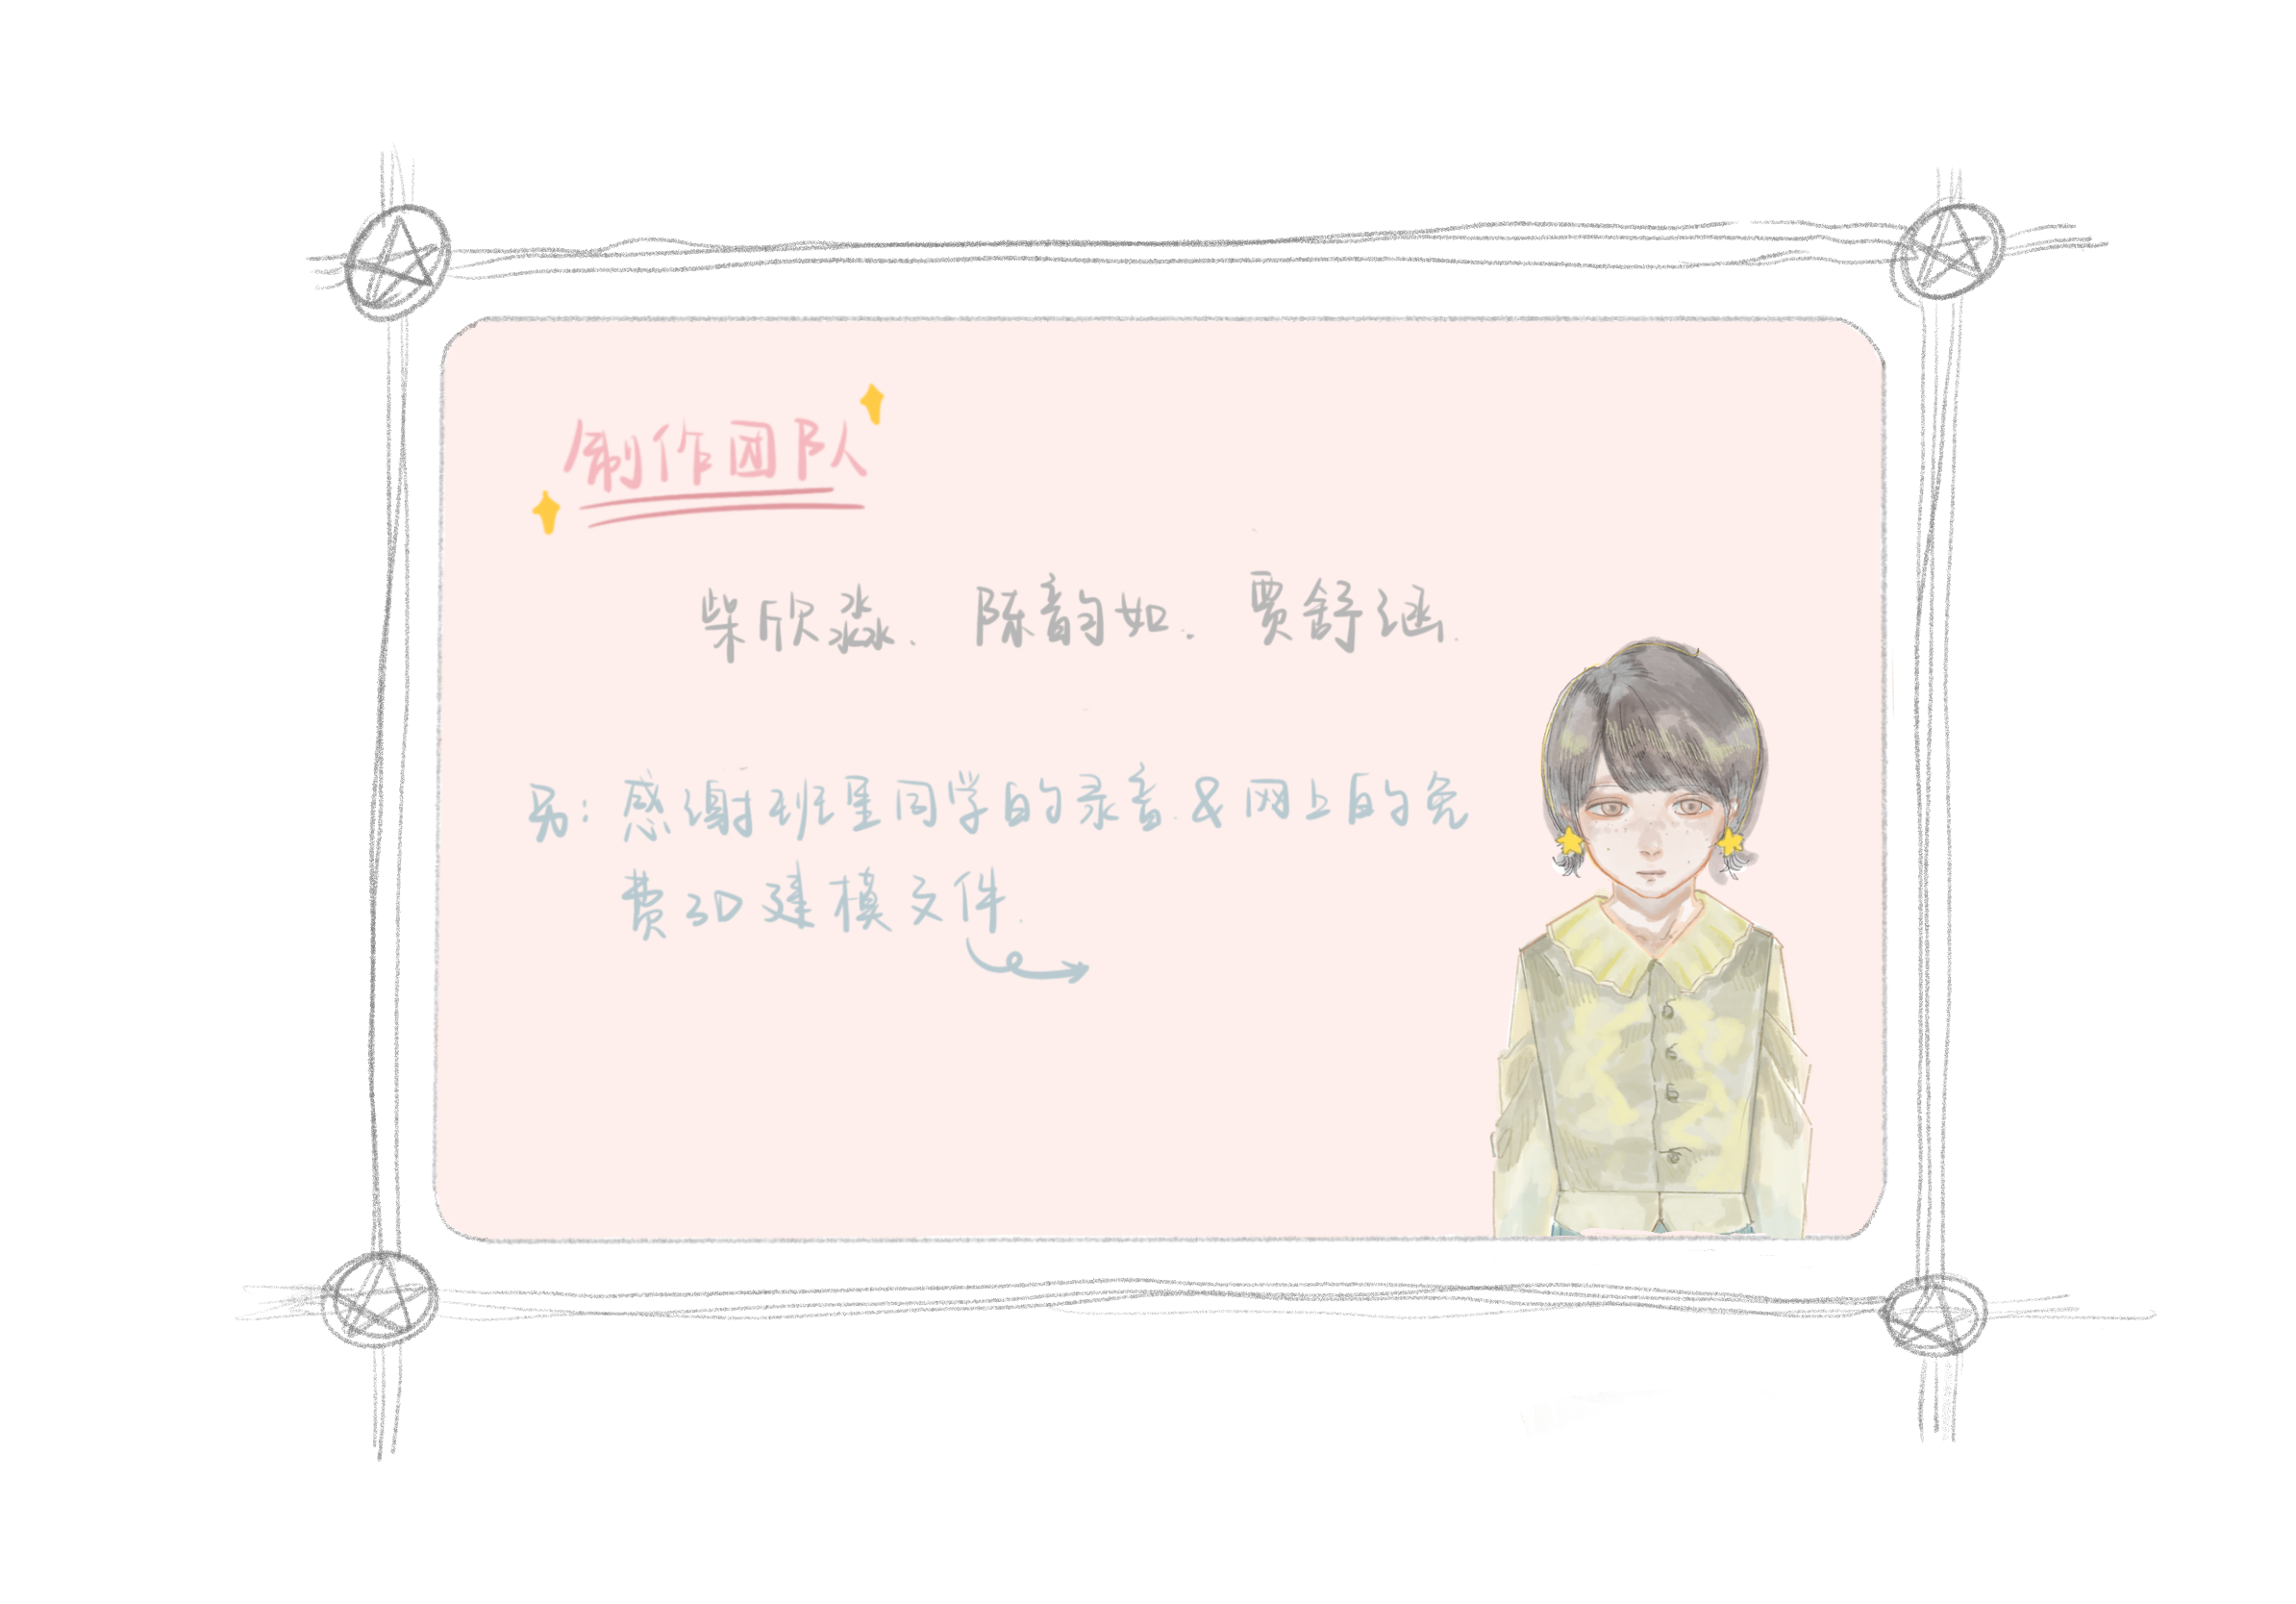 制作团队
柴欣淼、陈韵如、贾舒涵.
另：感谢班里同学的录音 & 网上的免
费3D建模文件.